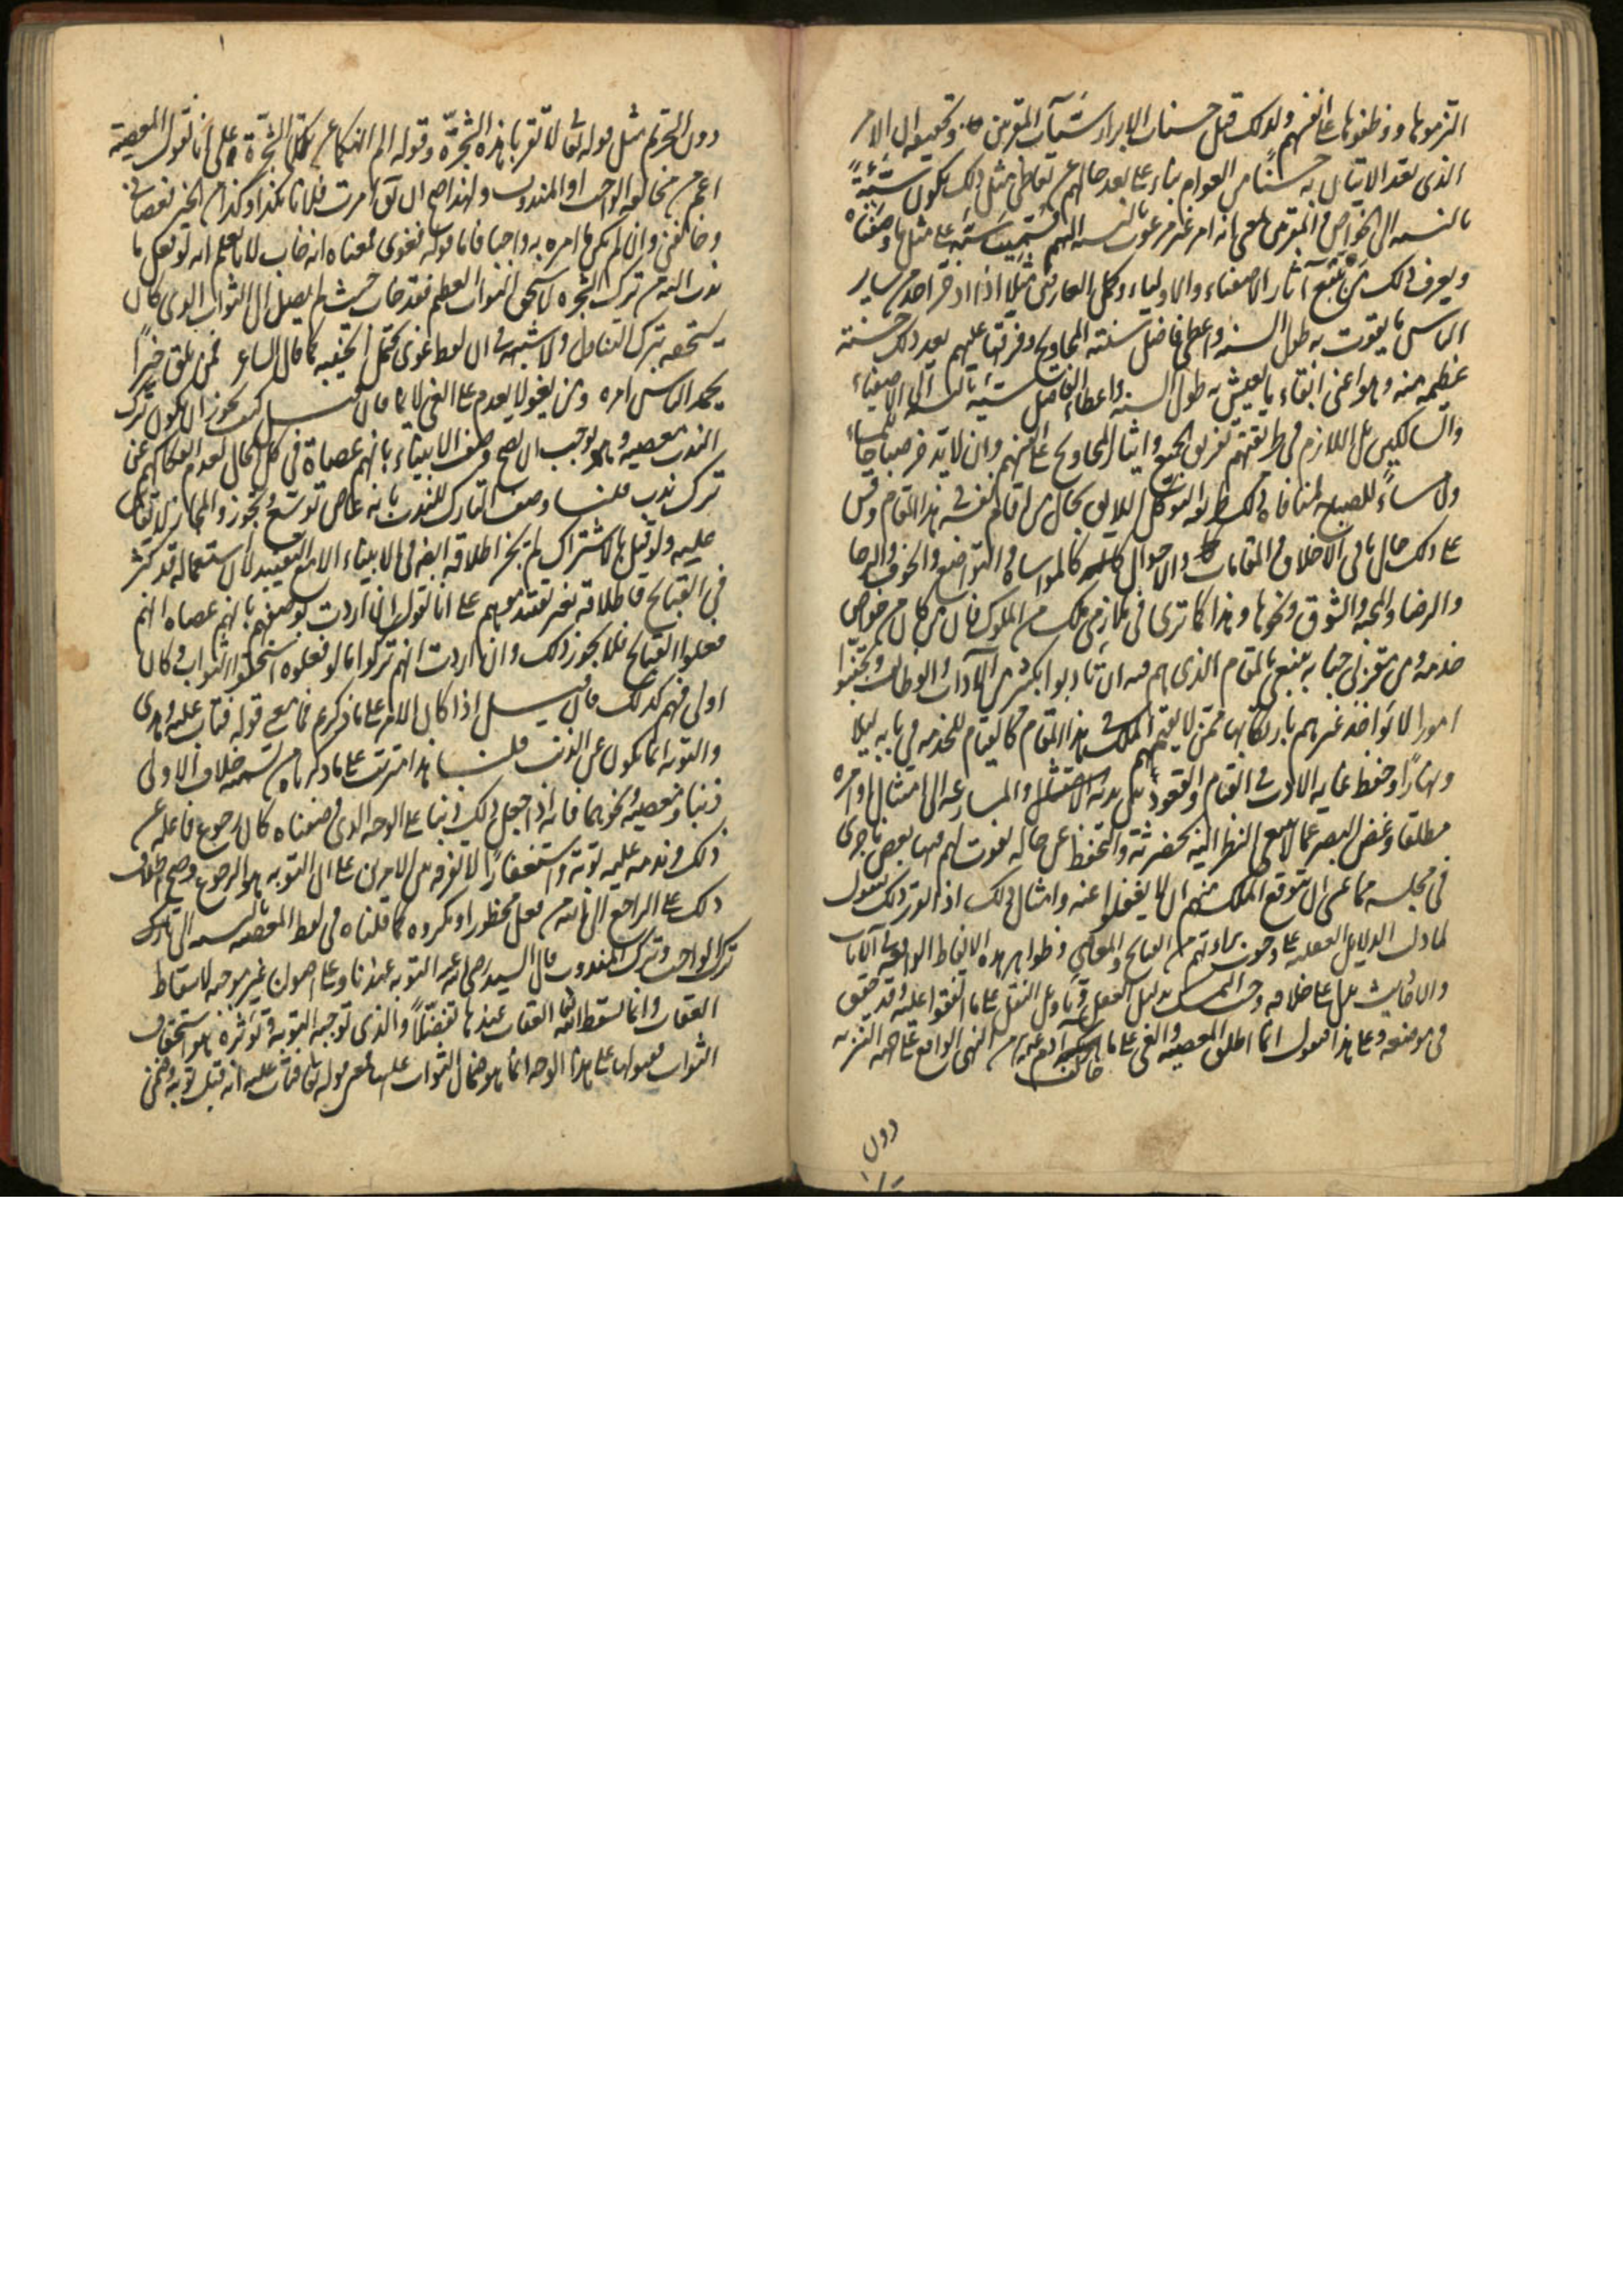 التزموها ووظفوها على انفسهم ولذلك قيل حسنات الابرار سيئات المقربين وتحقيقه ان الامر
الذى يعد الاتيان به حسنا من العوام بناء على بعد حالهم عن تعاطى مثل ذلك يكون سيئة
بالنسبه الى الخواص والمقربين بمعنى انه امر غير مرغوب بالنسبه اليهم فسميت سيئه على مثل ما وصفناه
ويعرف ذلك من تتبع آثار الاصفياء والاولياء وكمل العارفين مثلا اذا ادخر احد من ساير
الناس ما يقوت به طول السنه واعطى فاضل سنته المحاويج وفرقها عليهم يعد ذلك حسنة
عظيمه منه وهو اعنى ابقاء ما يعيش به طول السنه واعطاء الفاضل سيئه بالنسبه الى الاصفياء
والسالكين بل اللازم فى طريقتهم تفريق الجميع وايثار المحاويج على انفسهم وان لا يدخر صباحا للمساء
ولا مساءً للصباح لمنافاة ذلك طريقه التوكل اللايق بحال من اقام نفسه فى هذا المقام وقس
على ذلك حال باقى الاخلاق والمقامات والاحوال كالمواساة والتواضع والخوف والرجا
والرضا والمحبه والشوق ونحوها وهذا كما ترى فى ملازمى ملك من الملوك فان من كان من خواص
خدمه ومن مقربى جنابه ينبغى بالمقام الذى هم فيه ان يتادبوا بكثير من الآداب والوظايف ويجتنبوا
امورا لا تواخذ غيرهم بارتكابها ممن لا يقيمهم الملك فى هذا المقام كالقيام للخدمه فى بابه ليلا
ونهارًا وحفظ غايه الادب فى القيام والقعود بين يديه والمسارعه الى امتثال اوامره
مطلقا وغض البصر عما لا ينبغى النظر اليه بحضرته والتحفظ عن حاله يفوت لهم فيها بعض ما جرى
فى مجلسه مما عسى ان يتوقع الملك منهم ان لا يغفلوا عنه وامثال ذلك اذا تقرر ذلك نقول
لما دل الدلايل العقليه على وجوب براءتهم من القبايح والمعاصى وظواهر هذه الالفاظ الواقعه فى الآيات
والاحاديث يدل على خلافه وجب التمسك بدليل العقل وتاويل النقل على ما اتفقوا عليه وقد حقق
فى موضعه وعلى هذا فنقول انما اطلق المعصيه والغى على ما خالف آدم عم من النهى الواقع على جهه التنزيه
دون
دون التحريم مثل قوله تع لا تقربا هذه الشجرة وقوله الم انهكما عن تلكما الشجرة على انا نقول المعصيه
اعم من مخالفه الواجب او المندوب ولهذا صح ان يق امرت فلانا بكذا وكذا من الخير فعصانى
وخالفنى وان لم يكن ما امره به واجبا فاما قوله فغوى فمعناه انه خاب لانا نعلم انه لو فعل ما
ندب اليه من ترك الشجره لاستحق الثواب العظيم فقد خاب حيث لم يصل الى الثواب الذى كان
يستحقه بترك التناول ولا شبهه فى ان لفظ غوى يحتمل الخيبه كما قال الشاعر فمن يلق خيرًا
يحمد الناس امره ومن يغو لا يعدم على الغى لائما فان قيل كيف يجوز ان يكون ترك
الندب معصيه وهو يوجب ان يصح وصف الانبياء بانهم عصاة فى كل حال لعدم انفكاكهم عن
ترك ندب قلنا وصف التارك للندب بانه عاص توسع وتجوز والمجاز لا يقاس
عليه ولو قيل بالاشتراك لم يجز اطلاقه ايضا فى الانبياء الا مع التقييد لان استعماله قد كثر
فى القبايح فاطلاقه بغير تقييد موهم على انا نقول ان اردت بوصفهم بانهم عصاه انهم
فعلوا القبايح فلا يجوز ذلك وان اردت انهم تركوا ما لو فعلوه استحقوا الثواب وكان
اولى فهم كذلك فان قيل اذا كان الامر على ما ذكرتم فما معنى قوله فتاب عليه وهدى
والتوبه انما تكون عن الذنب قلنا هذا مترتب على ما ذكرناه من تسميه خلاف الاولى
ذنبا ومعصيه ونحوهما فانه اذا جعل ذلك ذنبا على الوجه الذى وصفناه كان رجوع فاعله عن
ذلك وندمه عليه توبة واستغفارًا لا تفرقه بين الامرين على ان التوبه هو الرجوع وصح اطلاق
ذلك على الراجع الى الله من فعل محظور او مكروه كما قلناه فى لفظ المعصيه بالنسبه الى تارك
ترك الواجب وترك المندوب قال السيد رضى الله عنه التوبه عندنا وعلى اصولنا غير موجبه لاسقاط
العقاب وانما يسقط الله تع العقاب عندها تفضلاً والذى توجبه التوبة وتوثره هو استحقاق
الثواب فقبولها على هذا الوجه انما هو ضمان الثواب عليها فمعنى قوله تع فتاب عليه انه قبل توبته وضمن